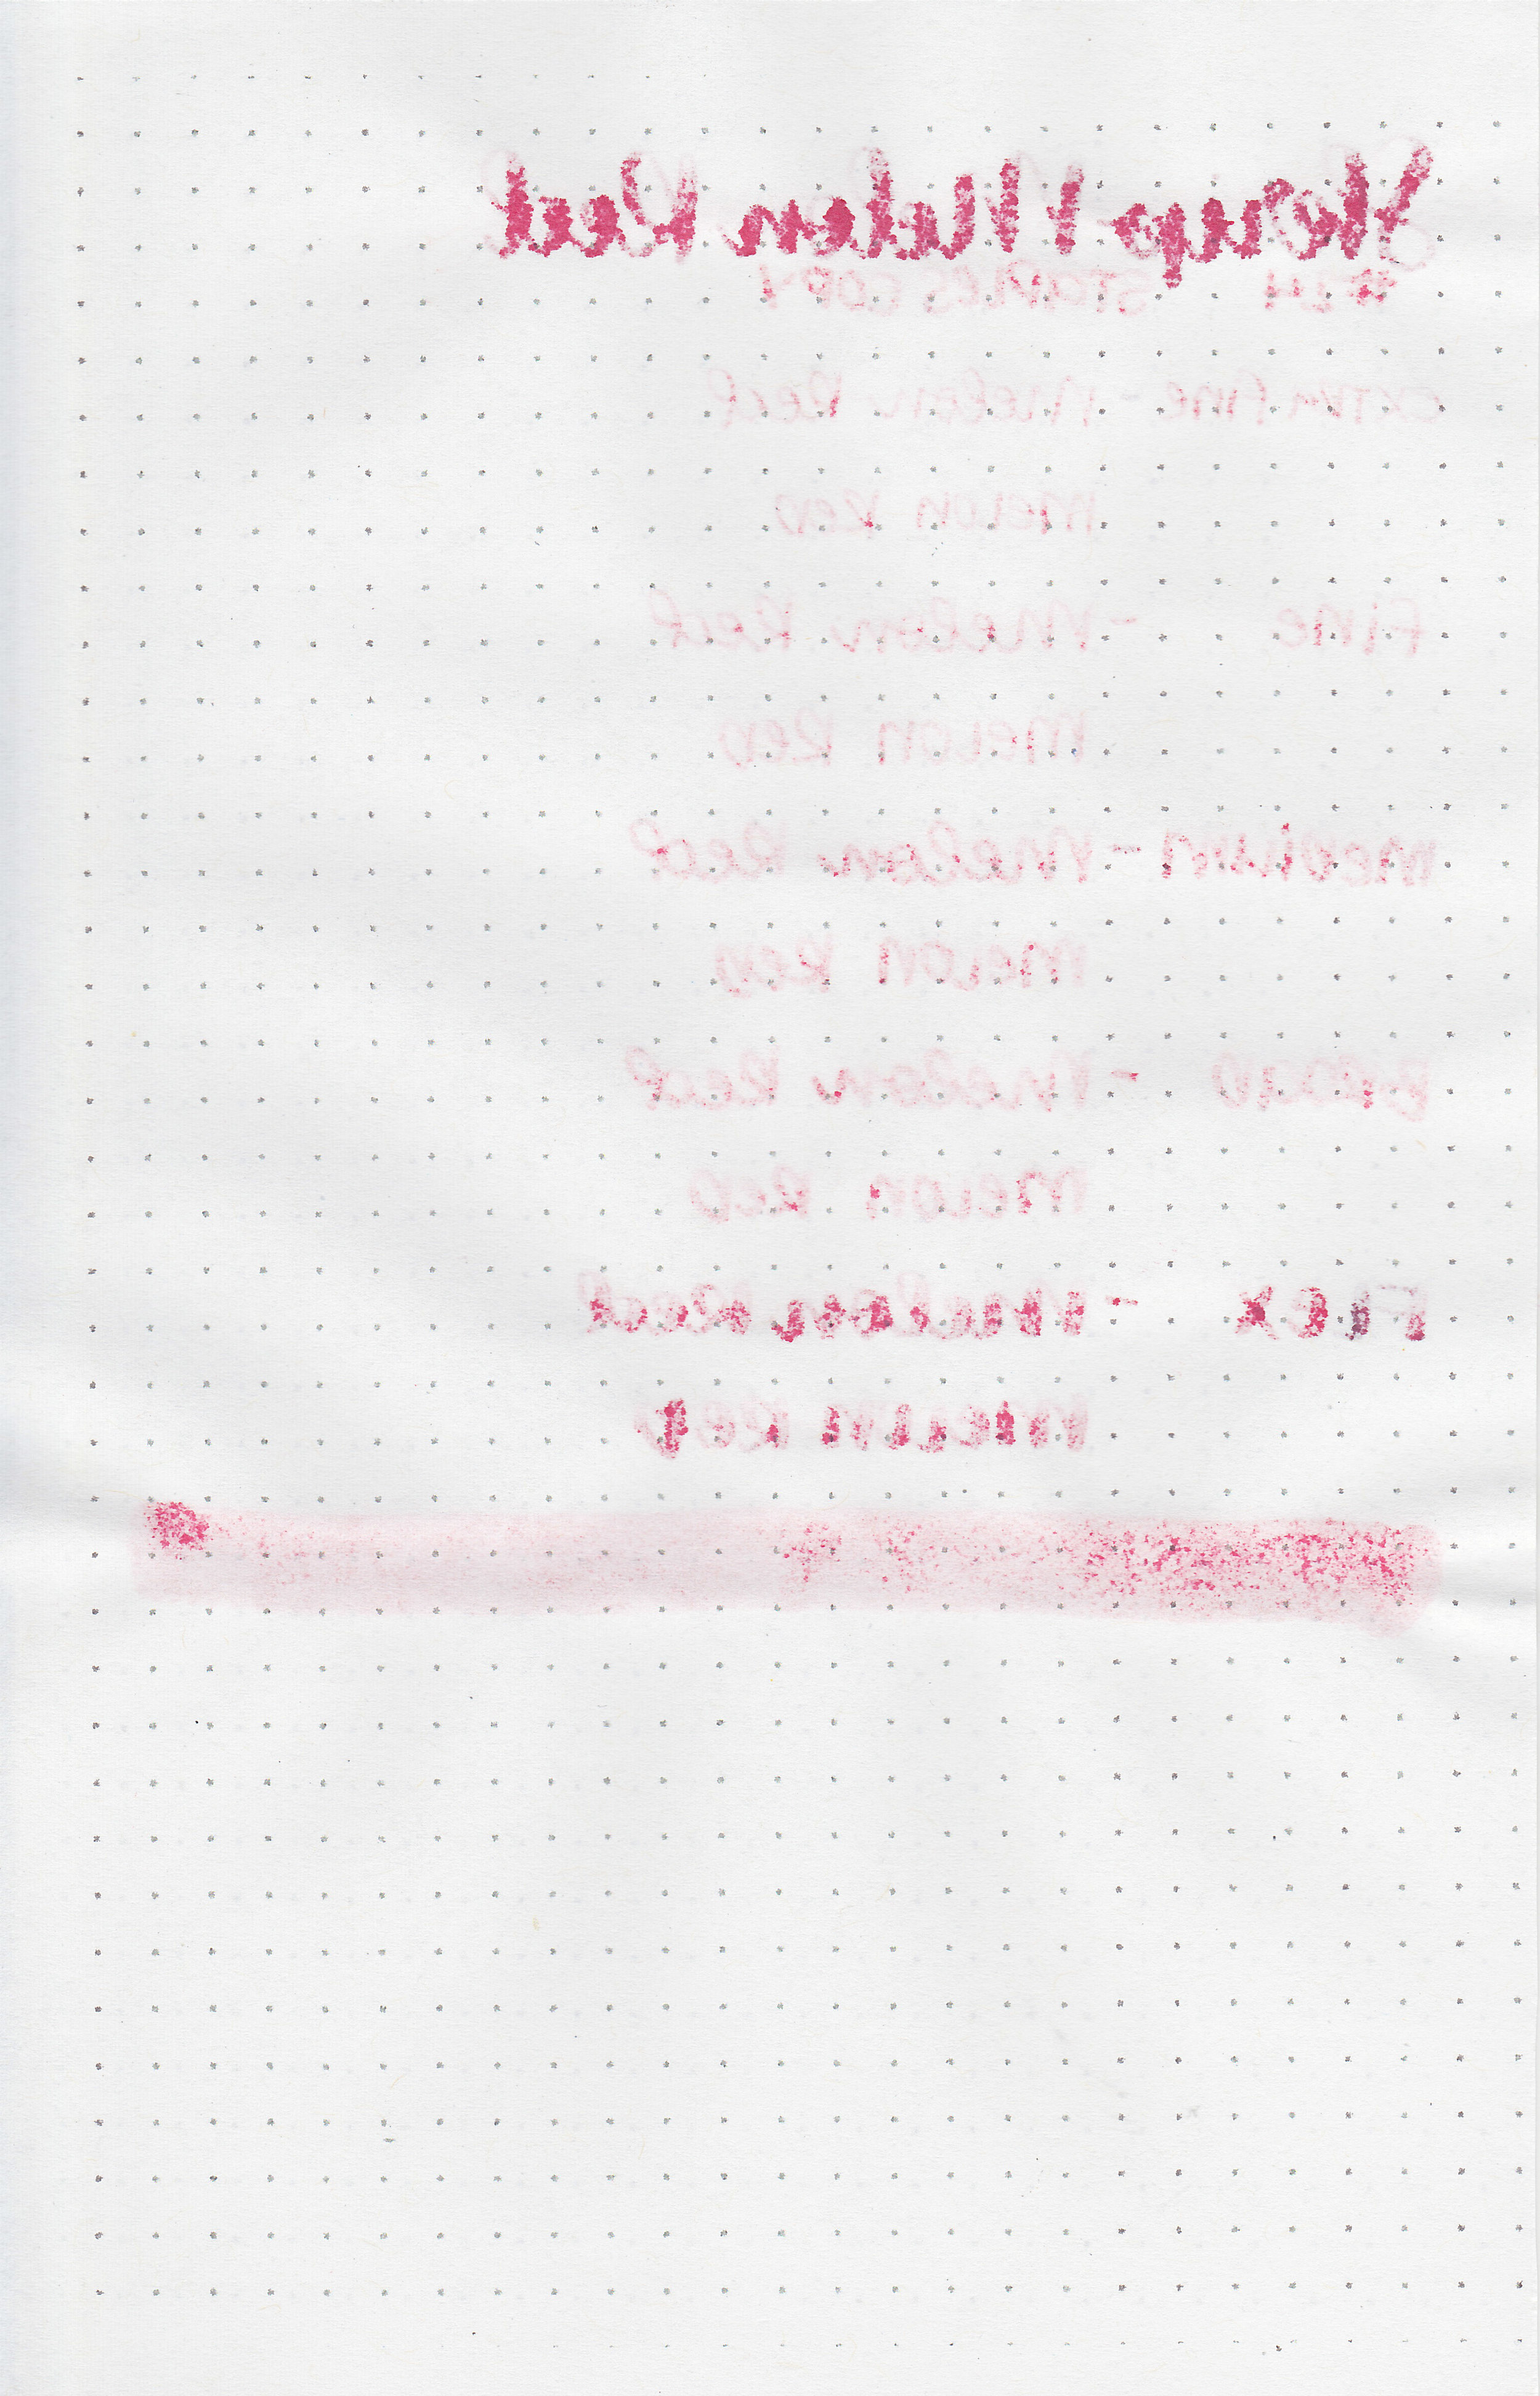 Skrip Melon Red
#24 STAPLES COPY
extra fine - Melon Red
Melon Red
Fine - Melon Red
Melon Red
Medium - Melon Red
Melon Red
Broad - Melon Red
Melon Red
Flex - Melon Red
Melon Red